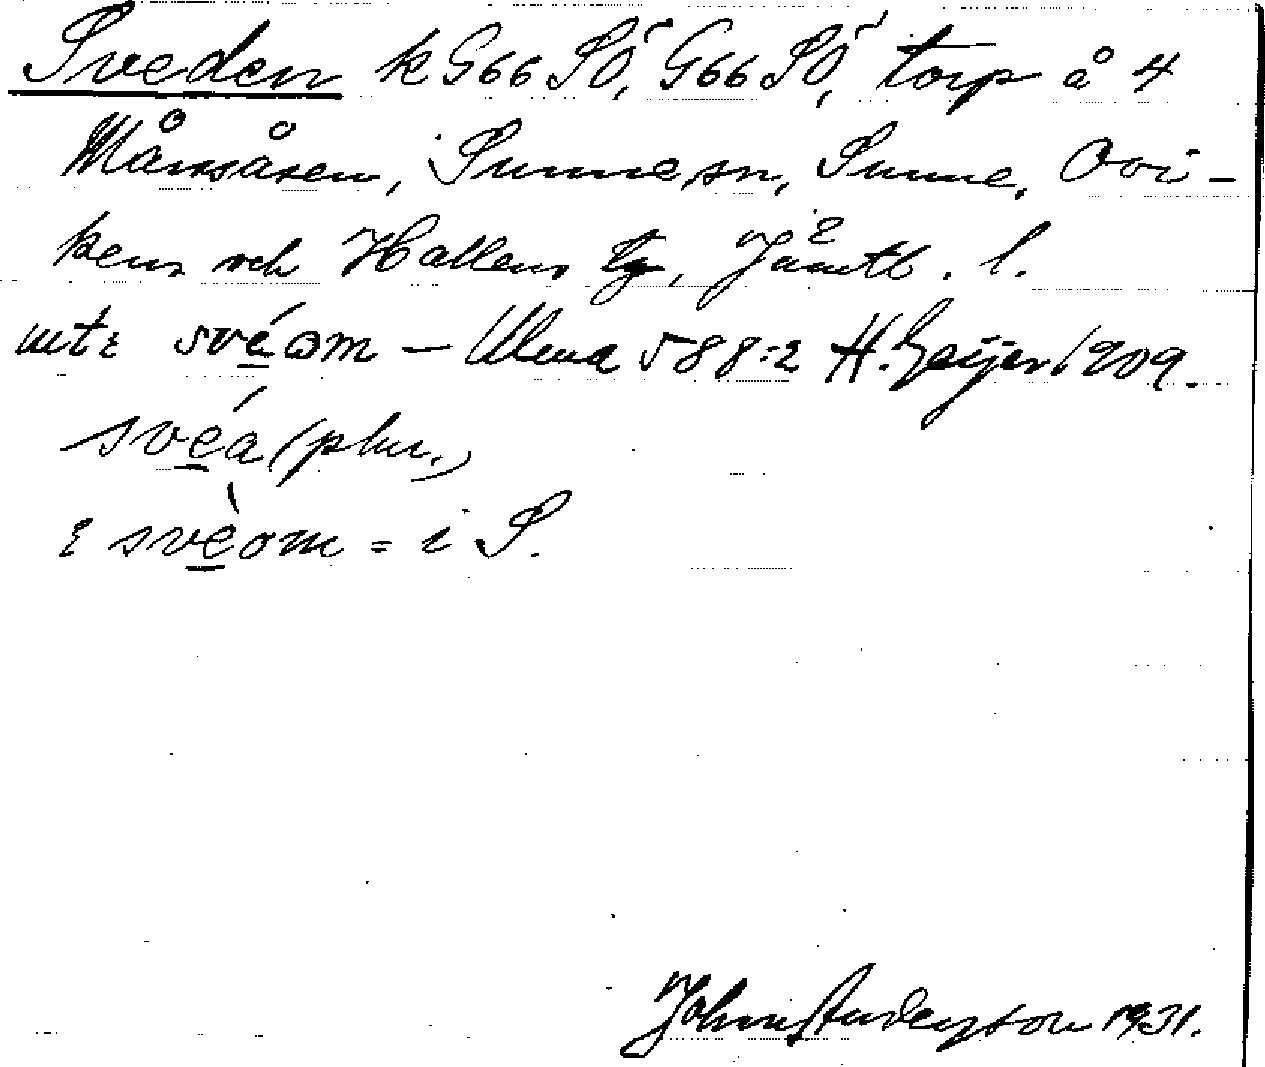 Sveden k G66 SÖ, G66 SÖ, torp å 4
Månsåsen, Sunne sn, Sunne, Ovi-
kens och Hallens tg, Jämtl. l.
svéom — 588:2 H. Geijer 1909.
svéa (plur.)
svèom = i S.
John Anderson 1931.